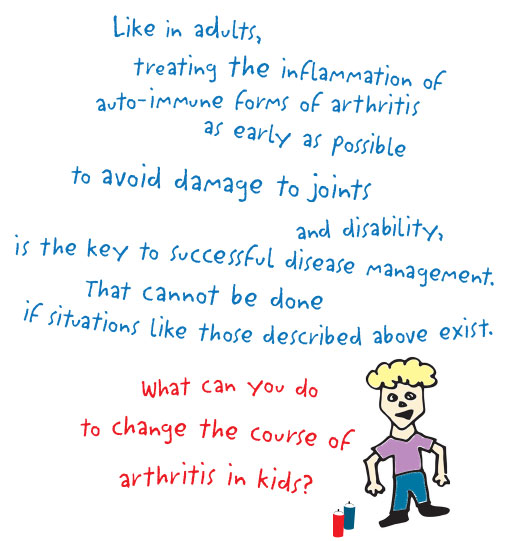 Like in adults,
treating the inflammation of
auto-immune forms of arthritis
as early as possible
to avoid damage to joints
and disability,
is the key to successful disease management.
That cannot be done
if situations like those described above exist.
What can you do
to change the course of
arthritis in kids?